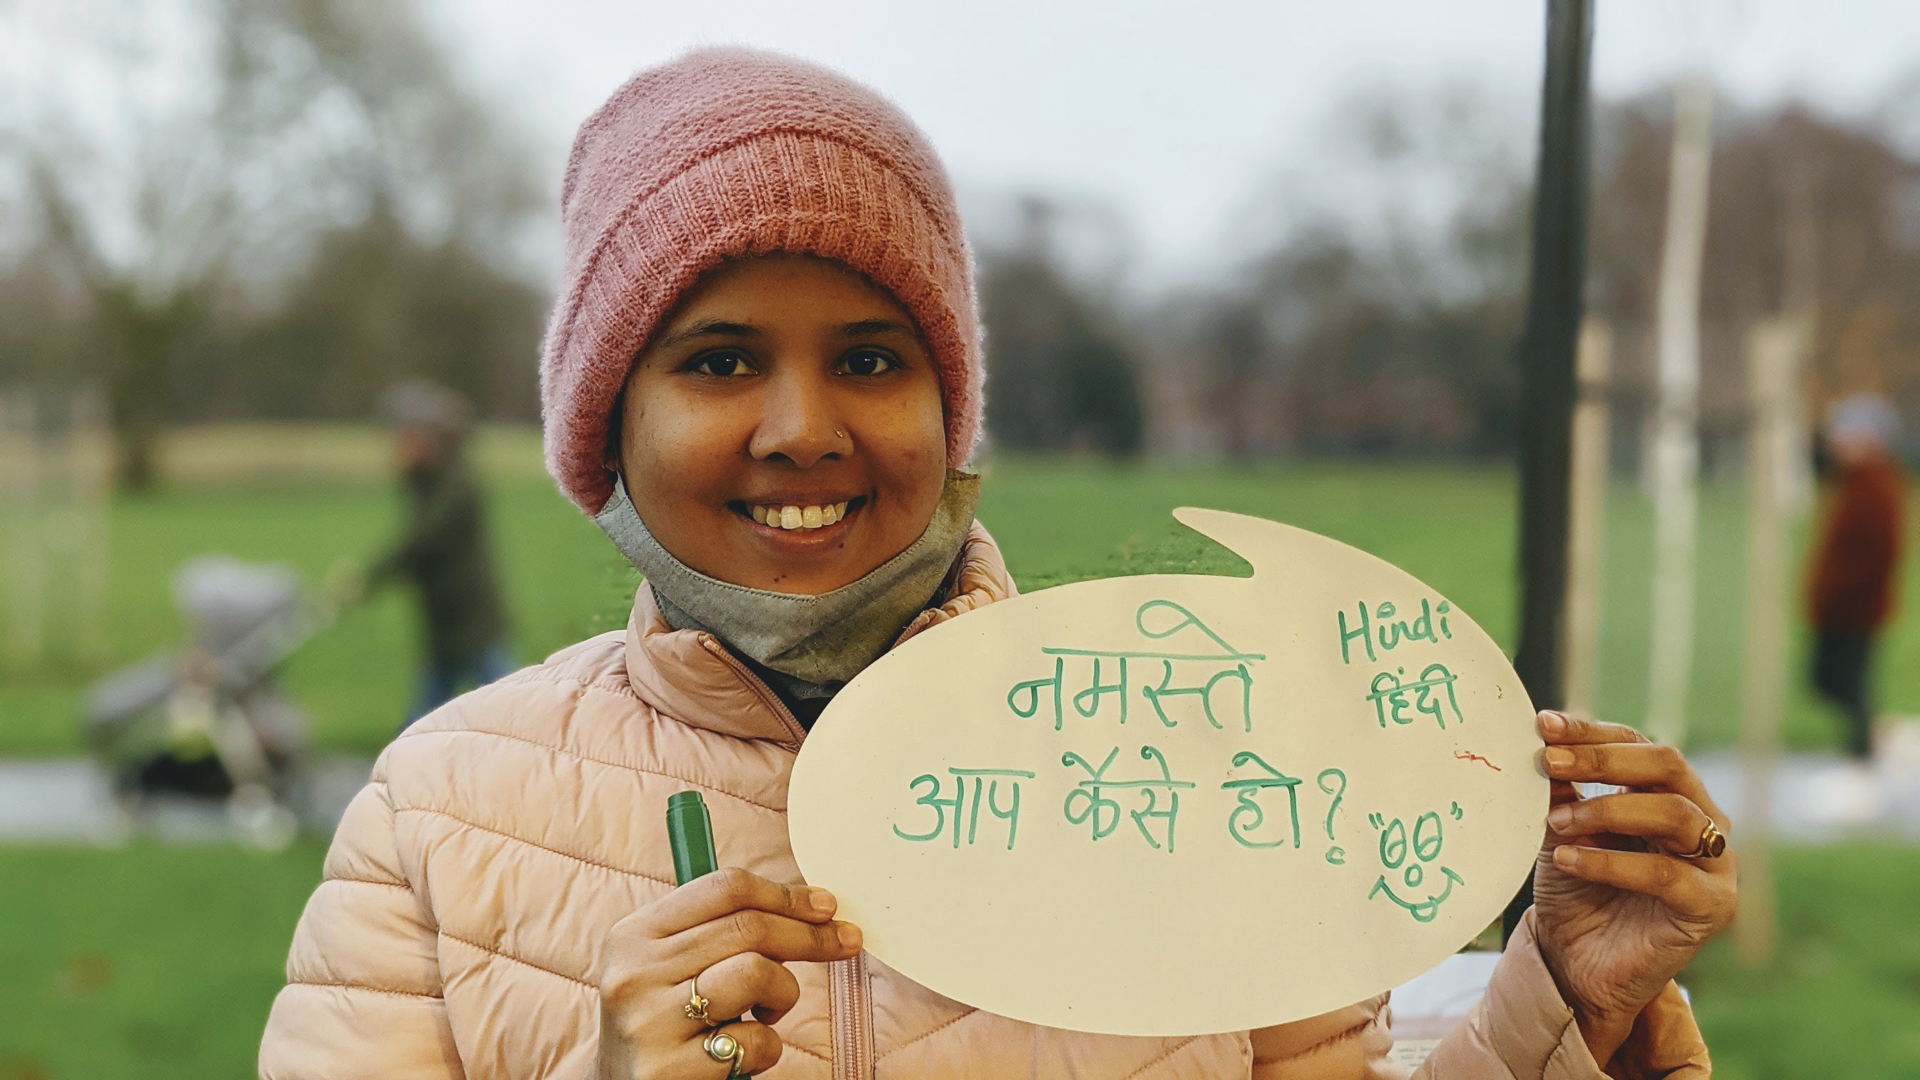 नमस्ते
आप कैसे हो?
Hindi
हिंदी